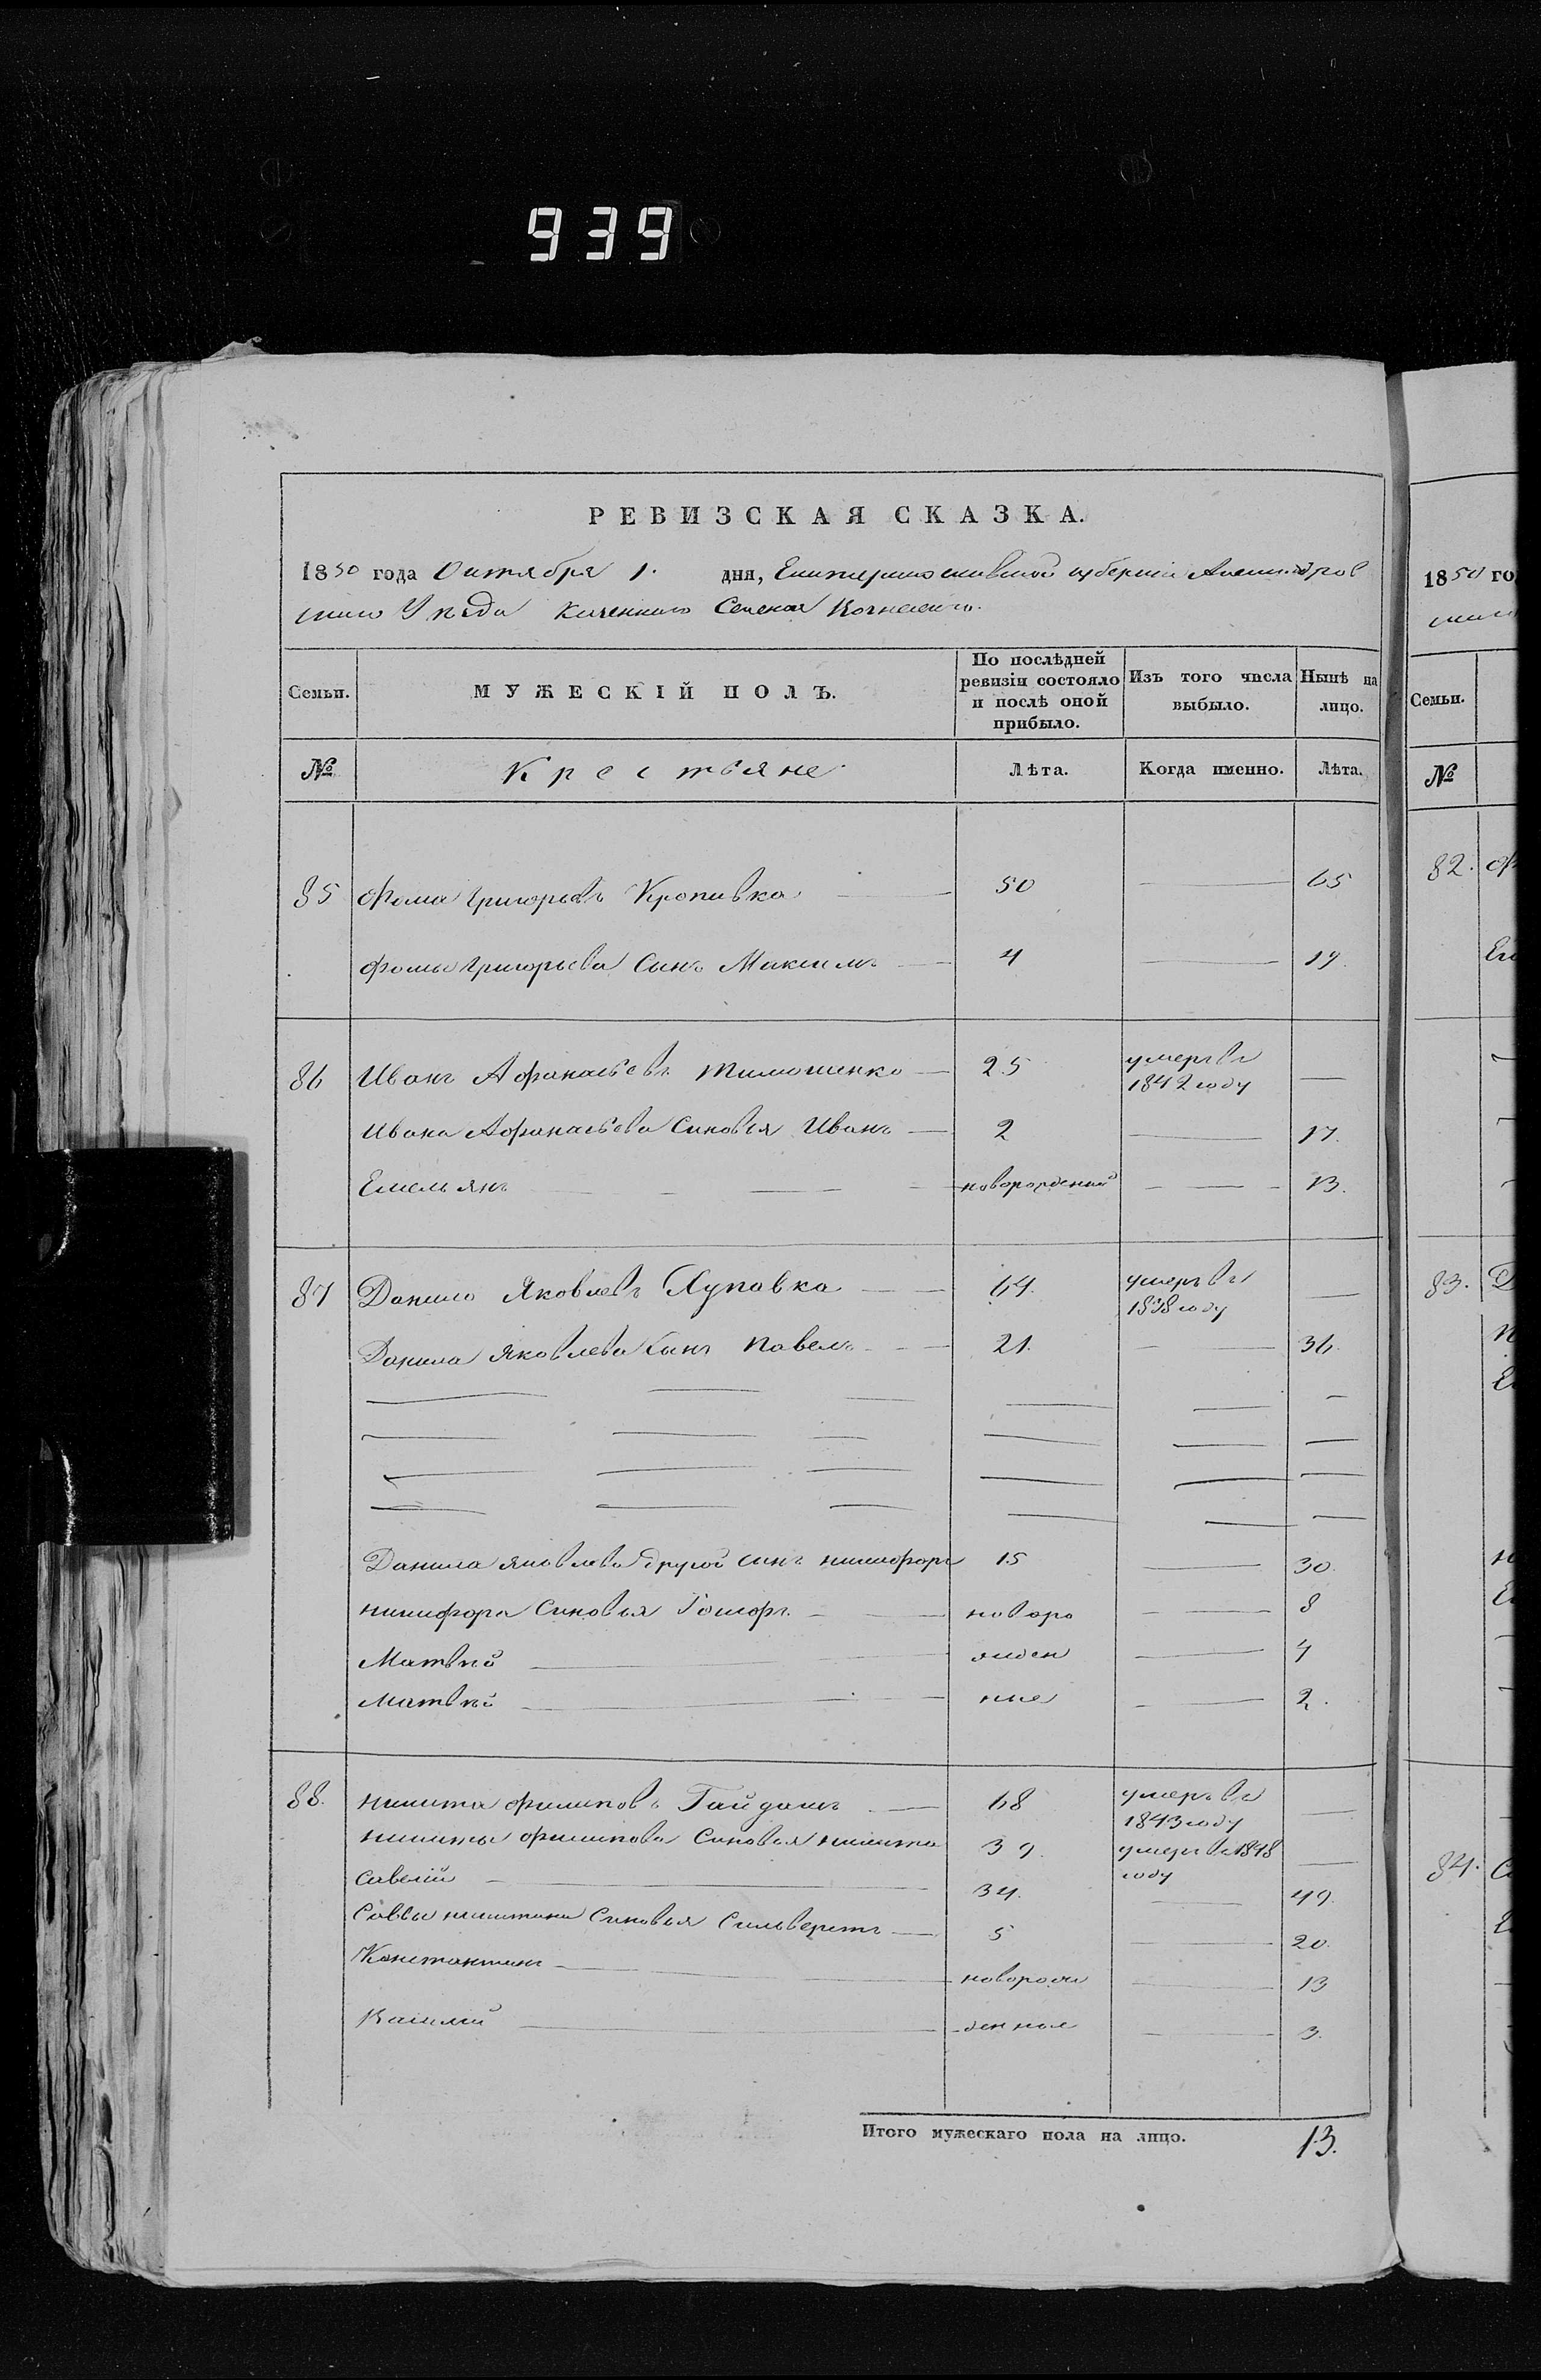 939
РЕВИЗСКАЯ СКАЗКА.
1850 года Октября 1. дня, Екатеринославской губернии Александров
скаго Уезда Казеннаго Селения
Семьи. МУЖЕСКІЙ ПОЛЪ. По послѣдней ревизіи состояло и послѣ оной прибыло. Изъ того числа выбыло. Нынѣ на лицо.
№ Крестьяне Лѣта. Когда именно. Лѣта.
85 Фома Григорьевъ Кропивка 50 65
Фомы Григорьева Сынъ Максимъ 4 19
86 Иванъ Афанасьевъ Тимошенко 25 умеръ въ 1842 году
Ивана Афанасьева Сыновья Иванъ 2 17.
Емельянъ новорожденный 13.
87 Данило Яковлевъ 64. умеръ въ 1838 году
Данила Яковлева Сынъ Павелъ 21. 36.
Данила Яковлева другой сынъ Никифоръ 15 30.
Никифора Сыновья новоро 8
Матвѣй жден 4
Матвѣй ные 2.
88. Никита Филиповъ Гайдашъ 68 умеръ въ 1843 году
Никиты Филипова Сыновья Никита 39. умеръ въ 1848 году
Савелій 34. 49.
Саввы Никитина Сыновья Сильверстъ 5 20.
Константинъ новорож 13
Василій денные 3.
Итого мужескаго пола на лицо. 13.
1850 го
Семьи.
№
82.
83.
84.